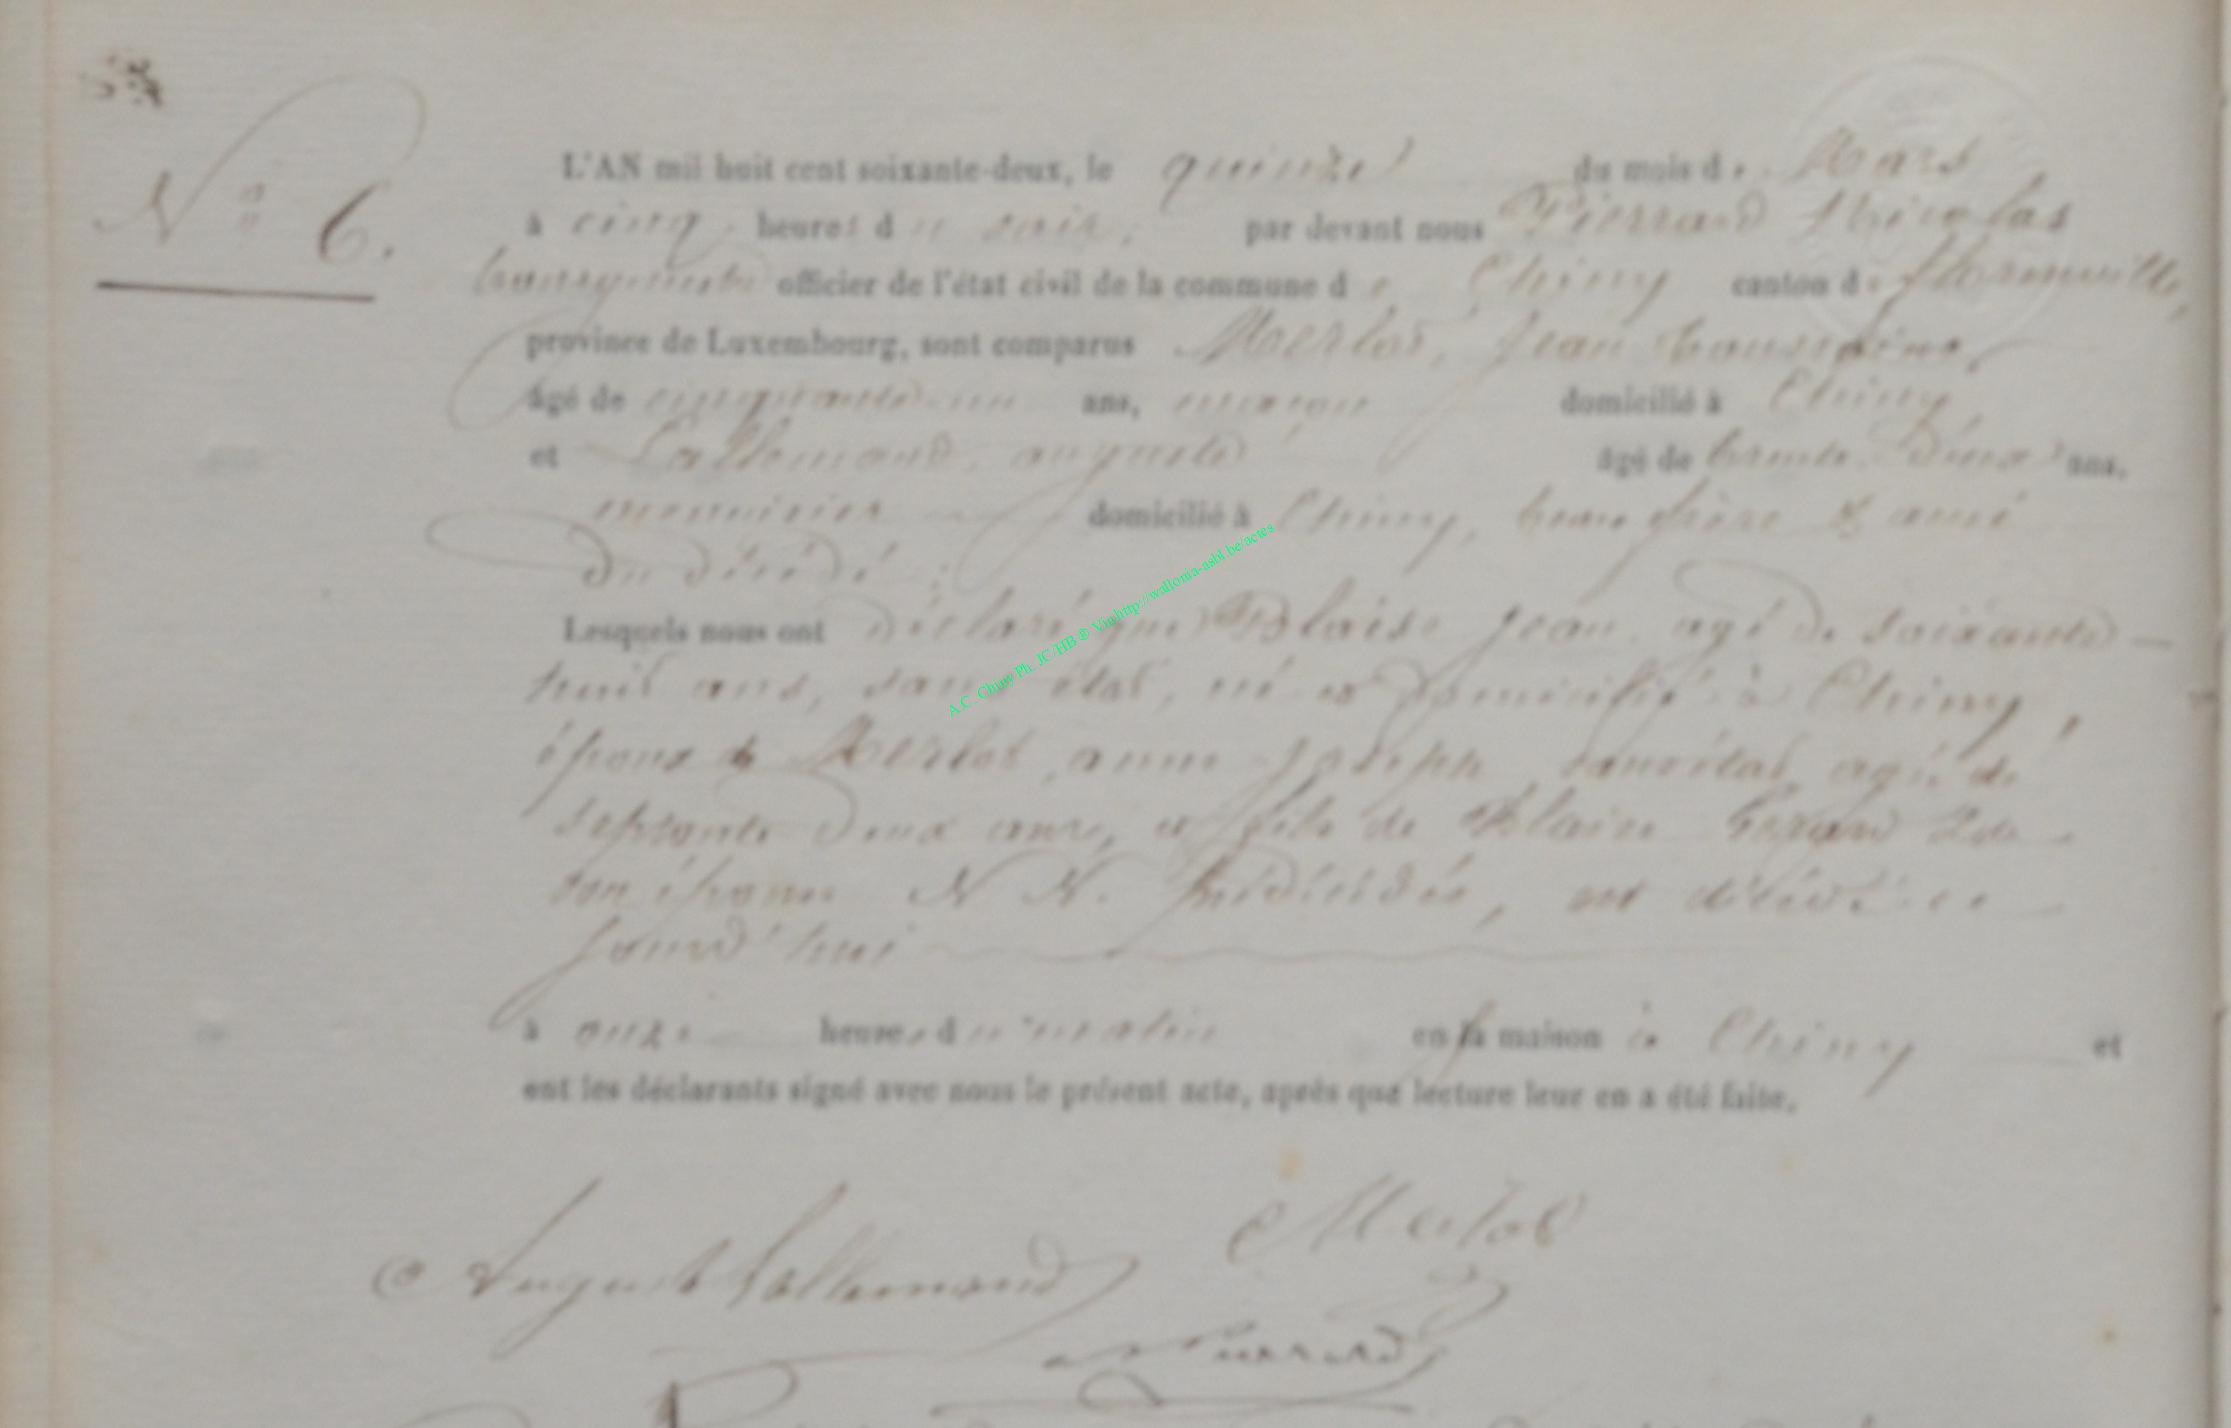 N° 6.
L'AN mil huit cent soixante-deux, le quinze du mois de Mars
à cinq heures du soir, par devant nous Pierrard Nicolas
bourgmestre officier de l'état civil de la commune de Chiny canton de florenville,
province de Luxembourg, sont comparus Merlot, Jean
âgé de cinquante-un ans, maçon domicilié à Chiny,
et Lallemand, auguste âgé de trente-deux ans,
menuisier domicilié à Chiny, beau frère & ami
du décédé ;
Lesquels nous ont déclaré que Blaise Jean agé de soixante-
huit ans, sans état, né et domicilié à Chiny,
époux de Merlot, anne joseph, sans état, agée de
septante deux ans, et fils de Blaise & de
son épouse N N. prédécédés, est décédé ce
jourd'hui
à onze heures du matin en sa maison à Chiny et
ont les déclarants signé avec nous le présent acte, après que lecture leur en a été faite.
A.C. Chiny Ph. JC/HB ® Via http://wallonia-asbl.be/actes
Merlot
Auguste Lallemand
Pierrard